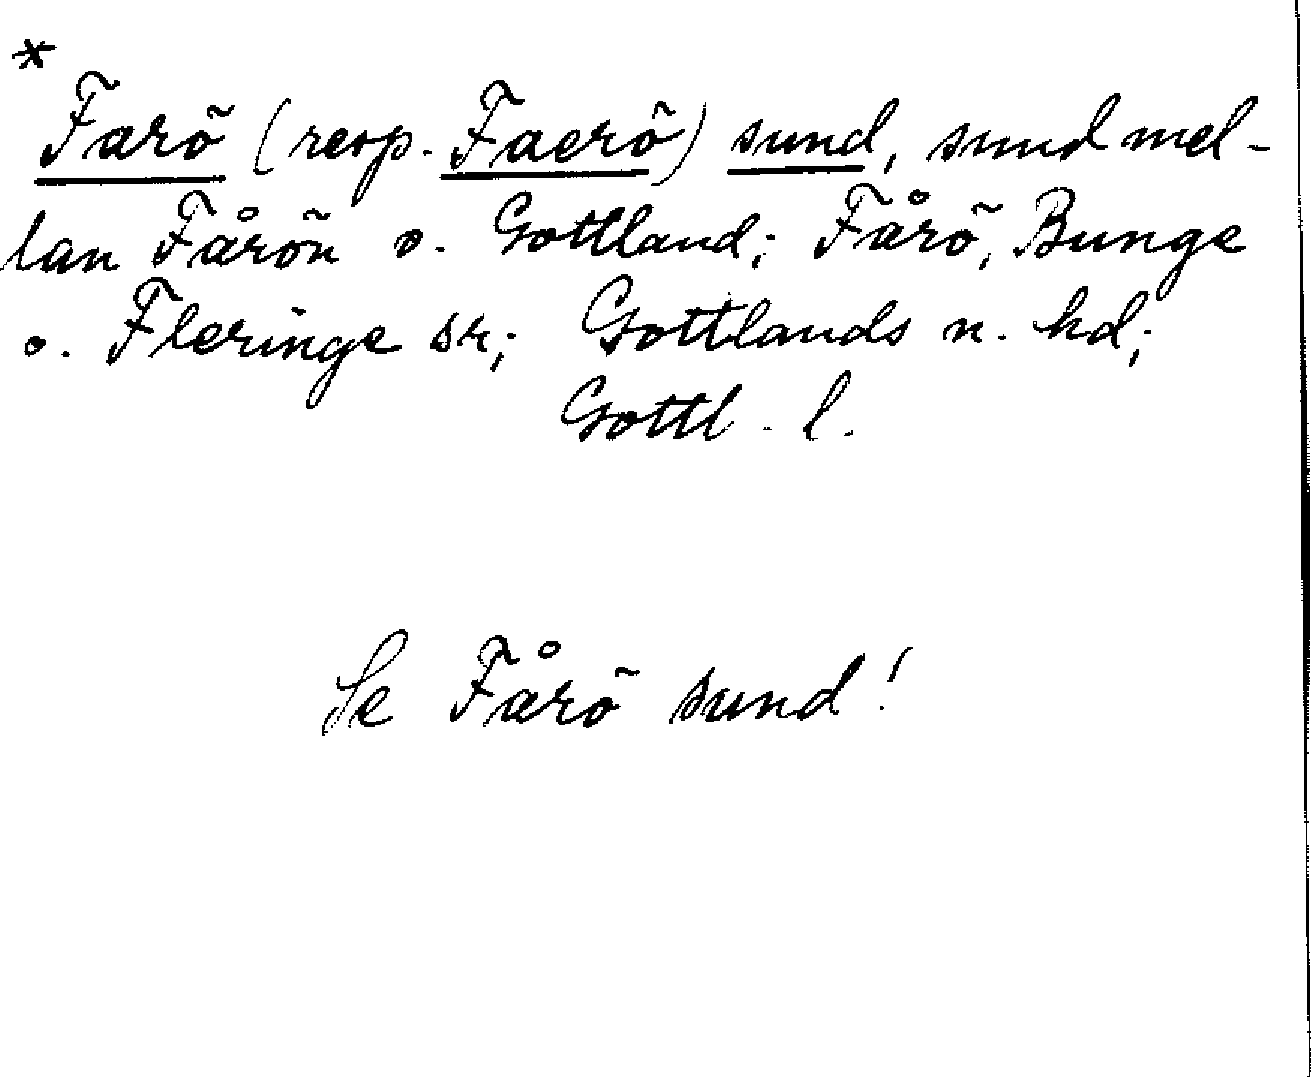 *
Farö (resp. Faerö) sund, sund mel-
lan Fårön o. Gottland; Fårö, Bunge
o. Fleringe sr; Gottlands n. hd;
Gottl. l.
Se Fårö sund!